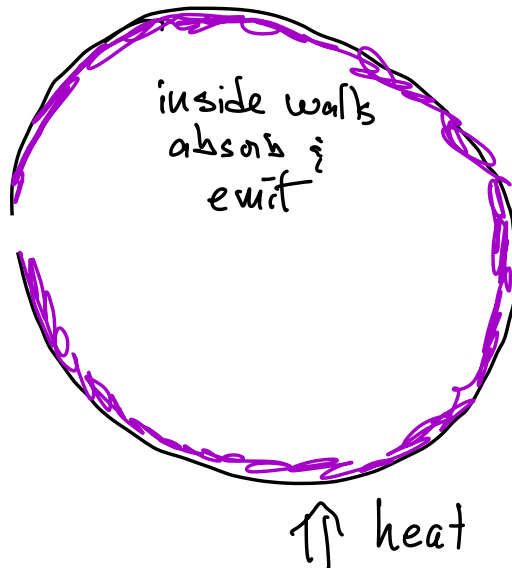 inside walls
absorb &
emit
heat